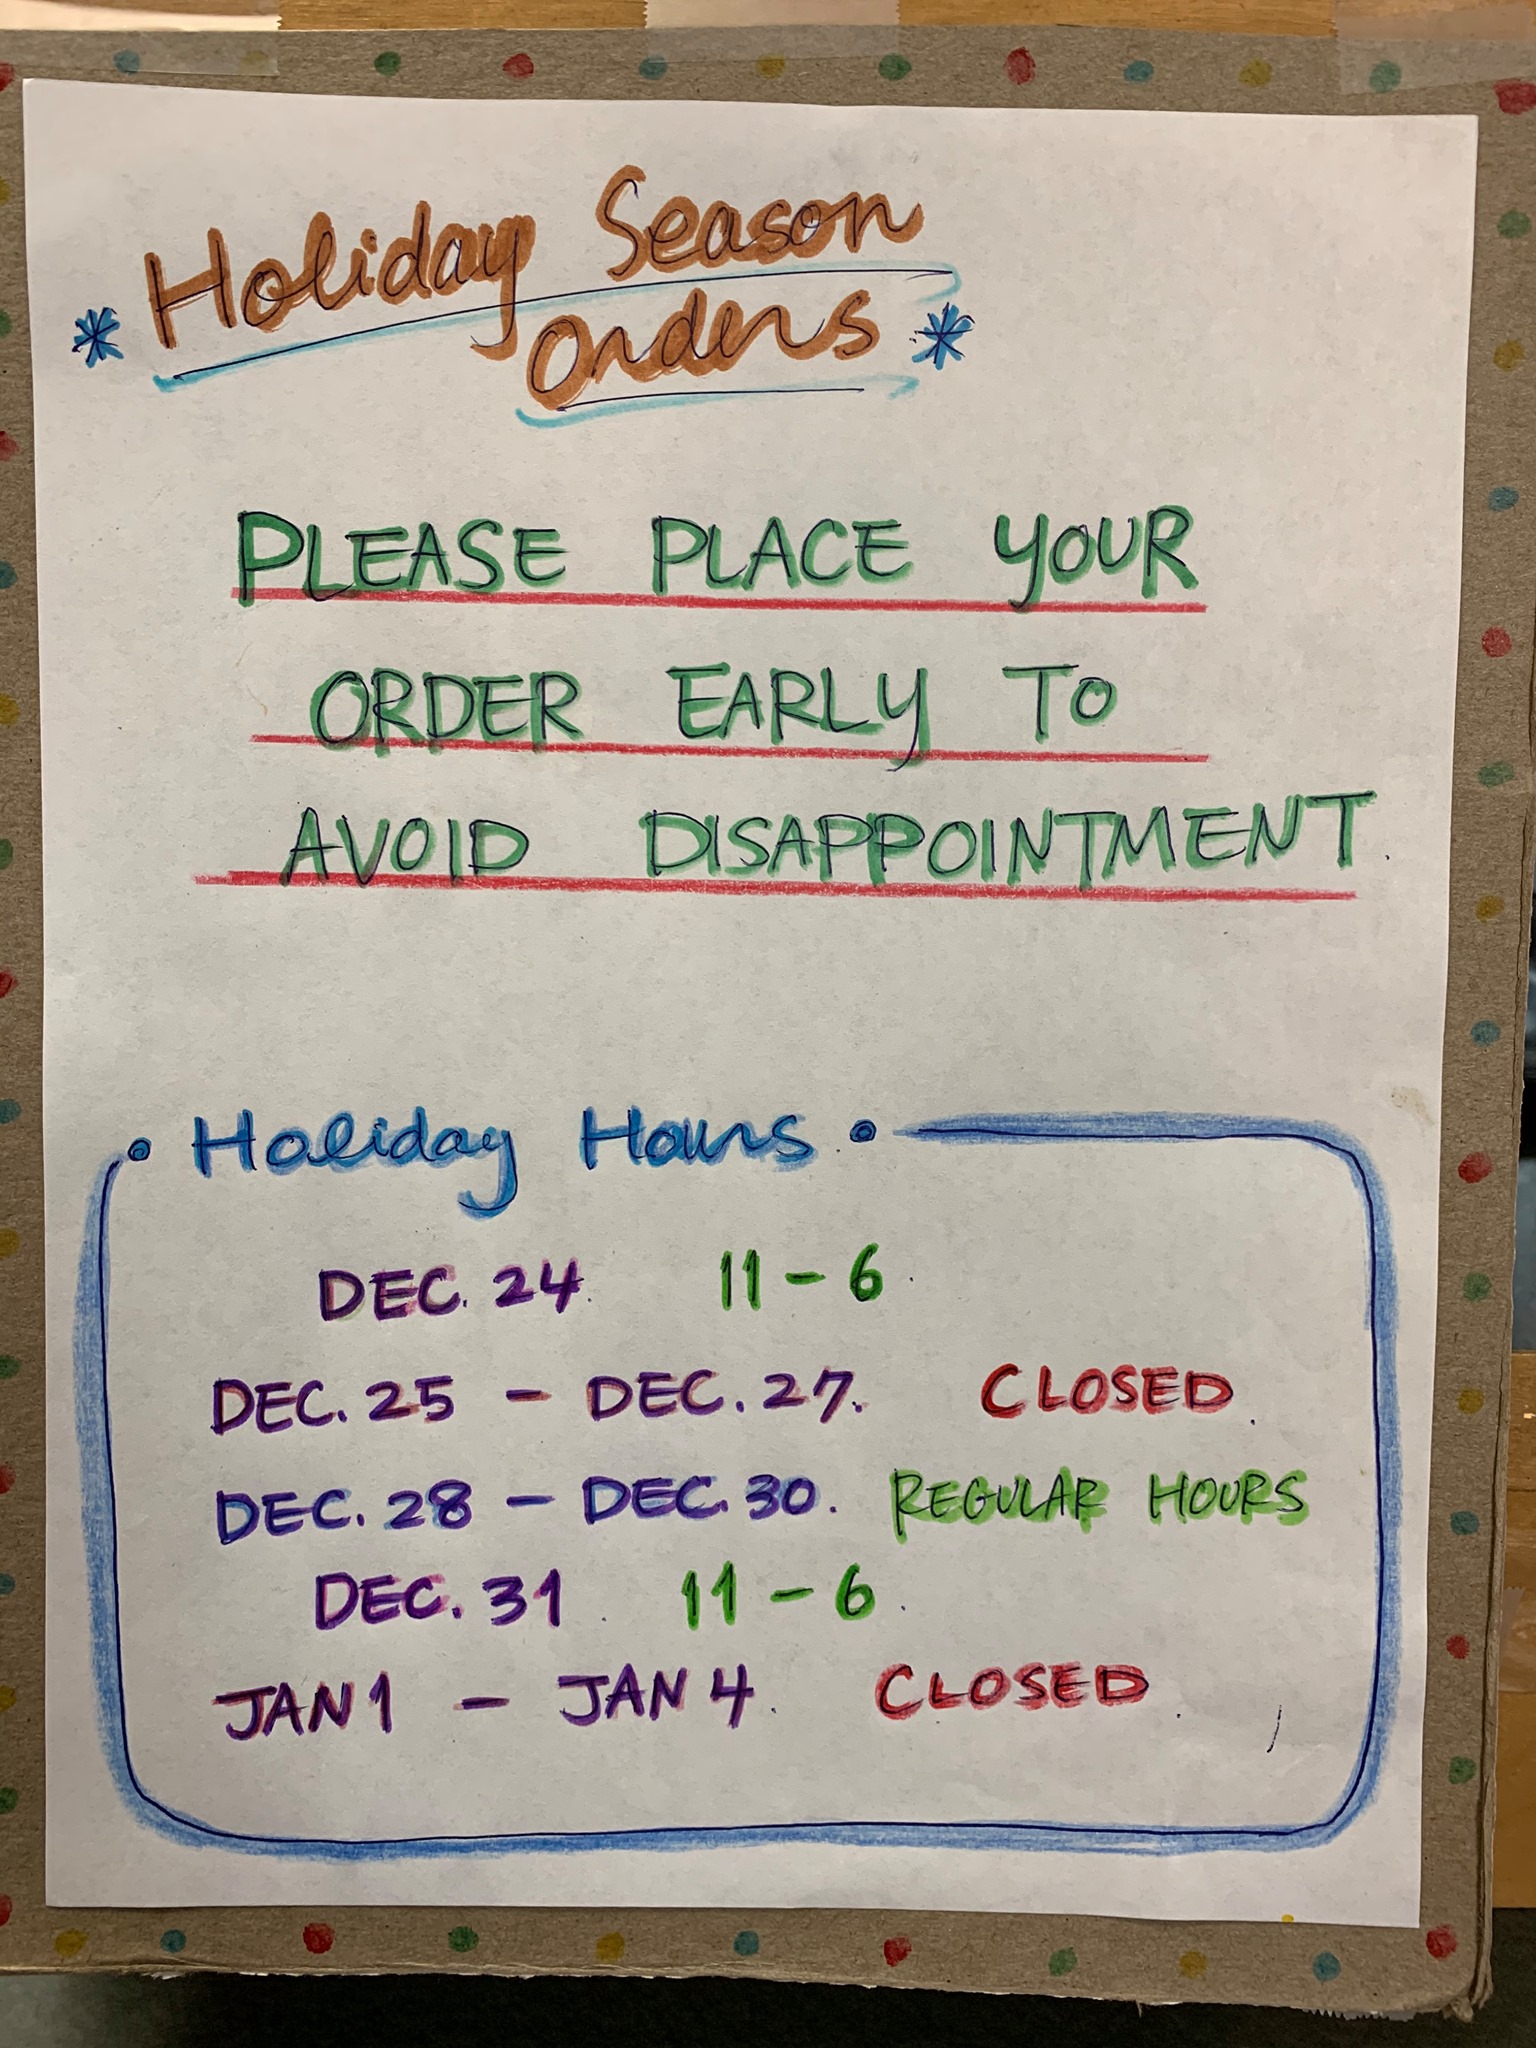 * Holiday Season
Orders *
PLEASE PLACE YOUR
ORDER EARLY TO
AVOID DISAPPOINTMENT.
• Holiday Hours •
DEC. 24 11 - 6
DEC. 25 - DEC. 27. CLOSED.
DEC. 28 - DEC. 30. REGULAR HOURS
DEC. 31 11 - 6.
JAN 1 - JAN 4. CLOSED.